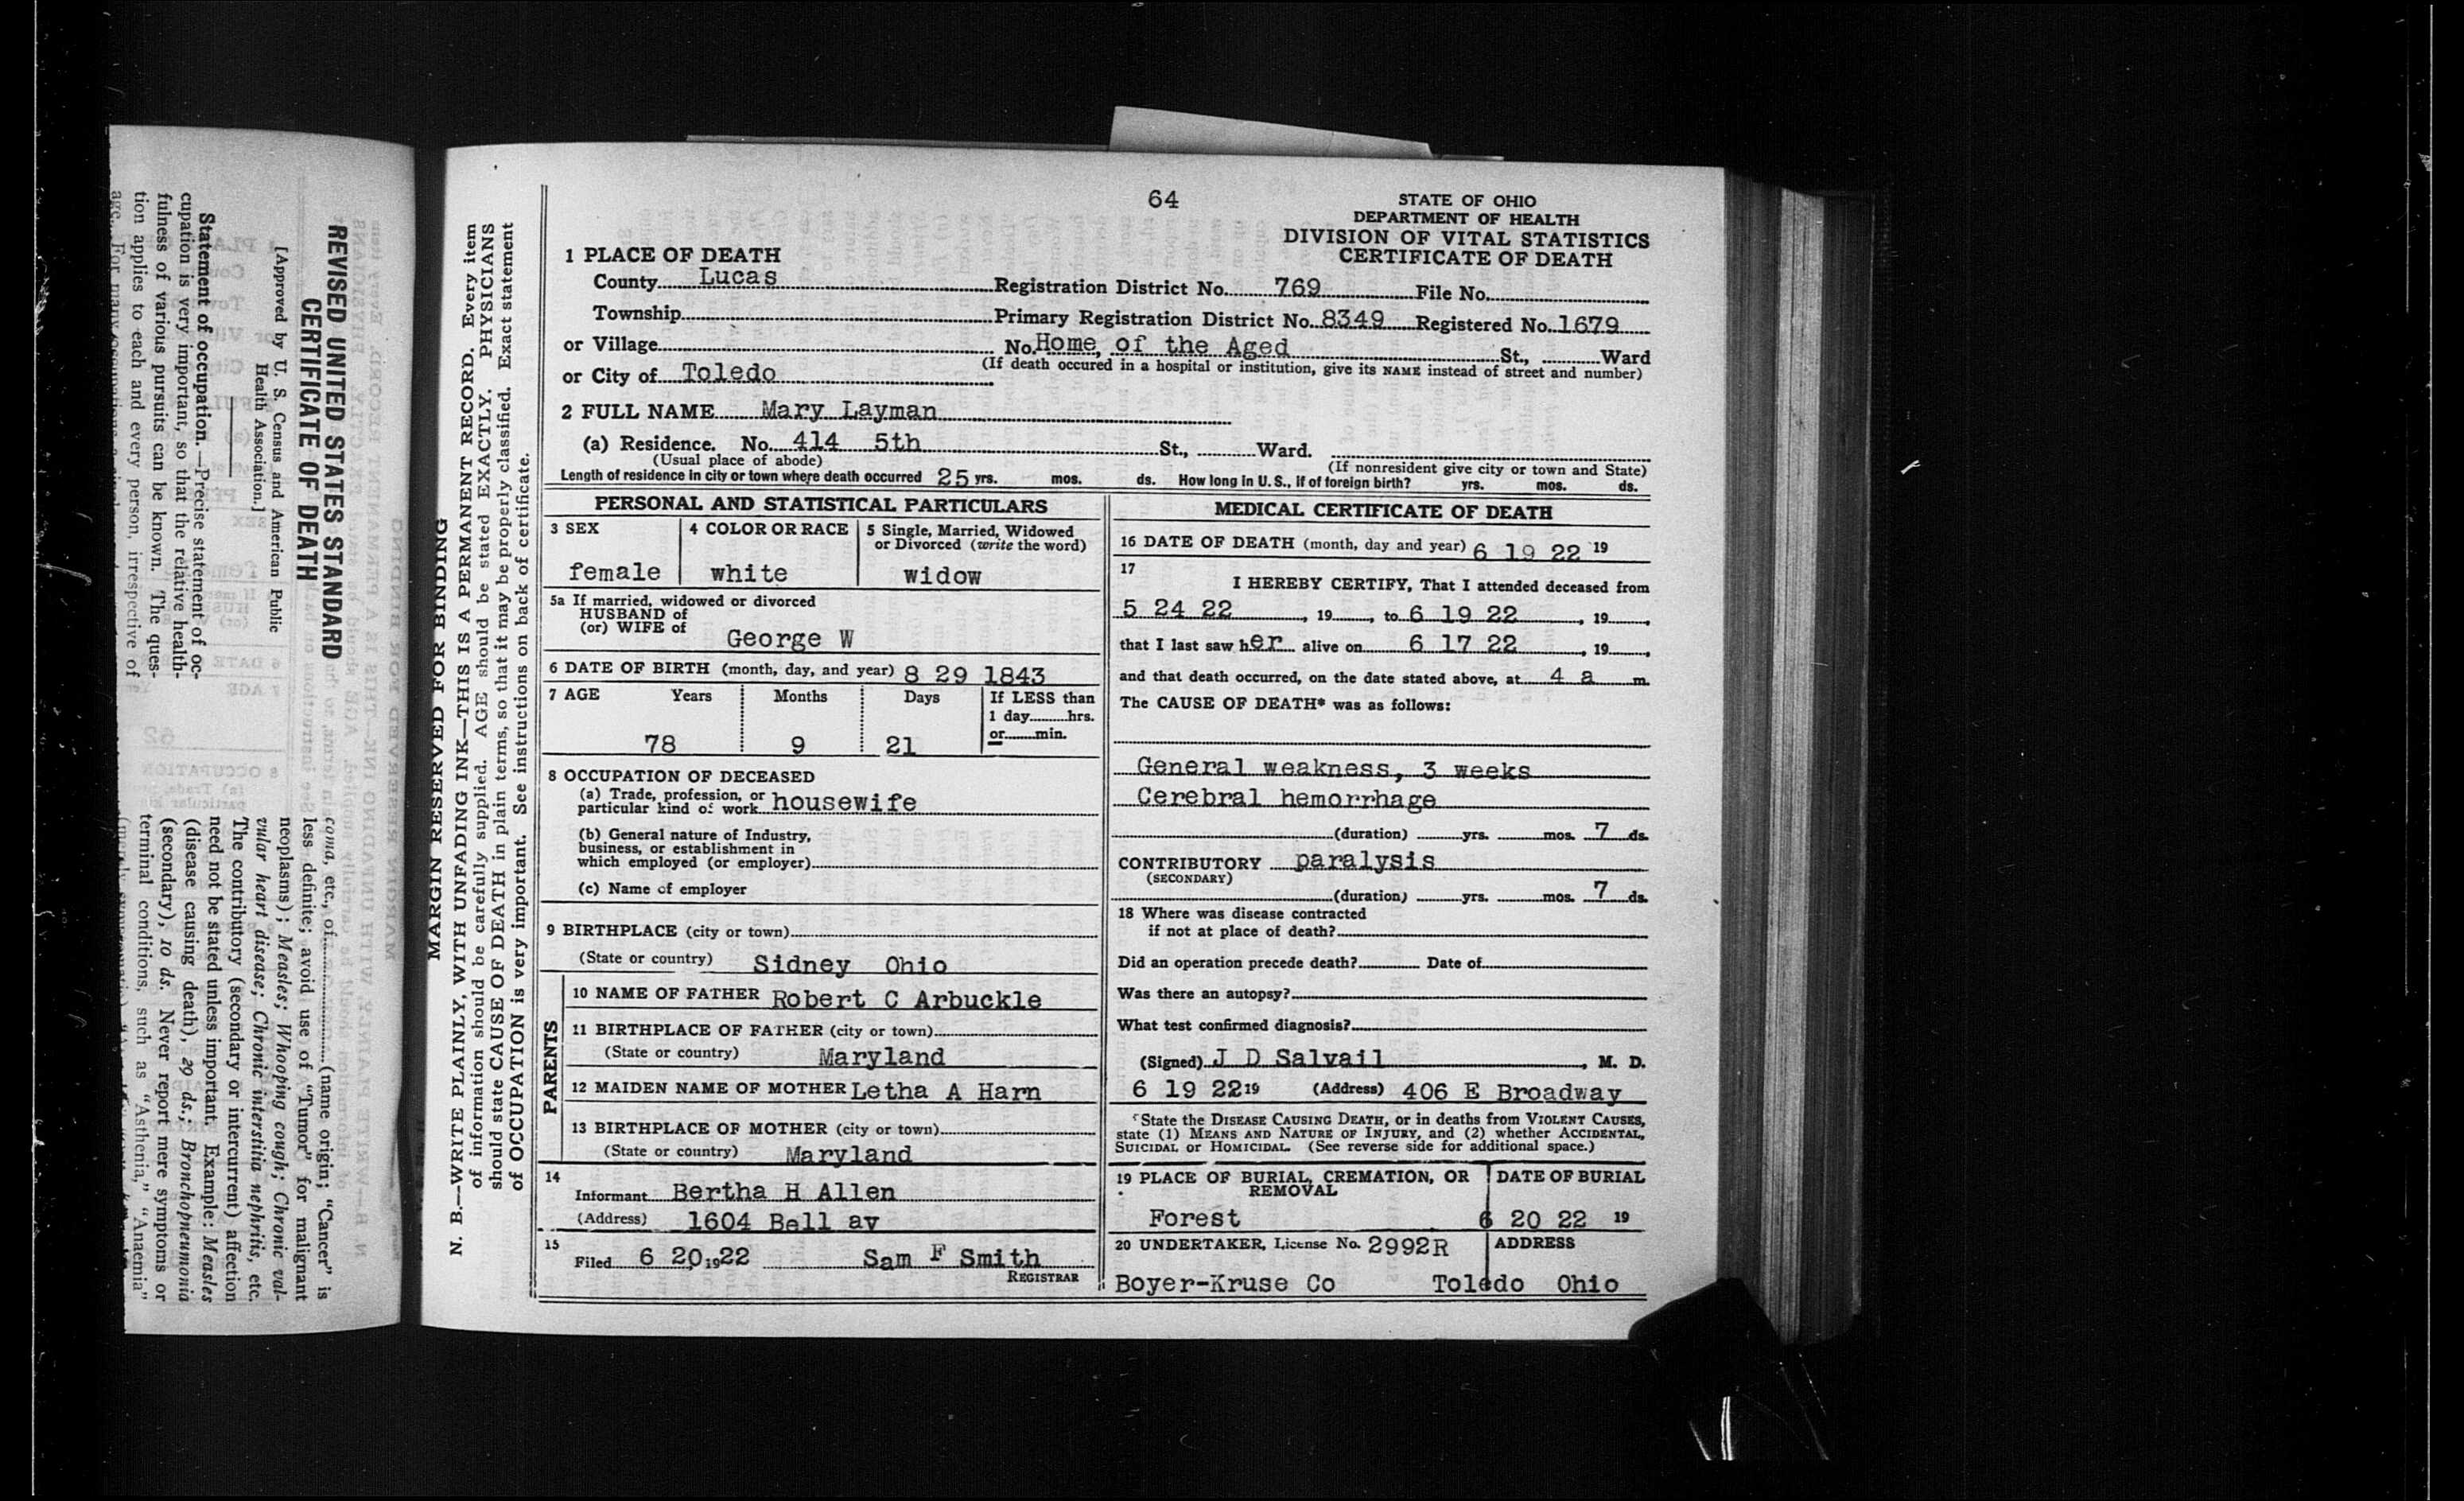 Statement of occupation.—Precise statement of oc-
cupation is very important, so that the relative health-
fulness of various pursuits can be known. The ques-
tion applies to each and every person, irrespective of
age. For many occupations
REVISED UNITED STATES STANDARD
CERTIFICATE OF DEATH
[Approved by U. S. Census and American Public
Health Association.]
coma, etc., of.......... (name origin; "Cancer" is
less definite; avoid use of "Tumor" for malignant
neoplasms); Measles; Whooping cough; Chronic val-
vular heart disease; Chronic interstitia nephritis, etc.
The contributory (secondary or intercurrent) affection
need not be stated unless important. Example: Measles
(disease causing death), 29 ds.; Bronchopneumonia
(secondary), 10 ds. Never report mere symptoms or
terminal conditions, such as "Asthenia," "Anaemia"
MARGIN RESERVED FOR BINDING
N. B.—WRITE PLAINLY, WITH UNFADING INK—THIS IS A PERMANENT RECORD. Every item
of information should be carefully supplied. AGE should be stated EXACTLY. PHYSICIANS
should state CAUSE OF DEATH in plain terms, so that it may be properly classified. Exact statement
of OCCUPATION is very important. See instructions on back of certificate.
64
STATE OF OHIO
DEPARTMENT OF HEALTH
DIVISION OF VITAL STATISTICS
CERTIFICATE OF DEATH
1 PLACE OF DEATH
County Lucas Registration District No. 769 File No.
Township Primary Registration District No. 8349 Registered No. 1679
or Village No. Home, of the Aged St., Ward
or City of Toledo (If death occured in a hospital or institution, give its NAME instead of street and number)
2 FULL NAME Mary Layman
(a) Residence. No. 414 5th St., Ward.
(Usual place of abode) (If nonresident give city or town and State)
Length of residence in city or town where death occurred 25 yrs. mos. ds. How long in U. S., if of foreign birth? yrs. mos. ds.
PERSONAL AND STATISTICAL PARTICULARS
3 SEX 4 COLOR OR RACE 5 Single, Married, Widowed
or Divorced (write the word)
female white widow
5a If married, widowed or divorced
HUSBAND of
(or) WIFE of George W
6 DATE OF BIRTH (month, day, and year) 8 29 1843
7 AGE Years Months Days If LESS than
1 day hrs.
or min.
78 9 21
8 OCCUPATION OF DECEASED
(a) Trade, profession, or
particular kind of work housewife
(b) General nature of Industry,
business, or establishment in
which employed (or employer)
(c) Name of employer
9 BIRTHPLACE (city or town)
(State or country) Sidney Ohio
PARENTS
10 NAME OF FATHER Robert C Arbuckle
11 BIRTHPLACE OF FATHER (city or town)
(State or country) Maryland
12 MAIDEN NAME OF MOTHER Letha A Harn
13 BIRTHPLACE OF MOTHER (city or town)
(State or country) Maryland
14
Informant Bertha H Allen
(Address) 1604 Bell av
15
Filed 6 20, 1922 Sam F Smith
REGISTRAR
MEDICAL CERTIFICATE OF DEATH
16 DATE OF DEATH (month, day and year) 6 19 22 19
17
I HEREBY CERTIFY, That I attended deceased from
5 24 22, 19, to 6 19 22, 19,
that I last saw her alive on 6 17 22, 19,
and that death occurred, on the date stated above, at 4 a m.
The CAUSE OF DEATH* was as follows:
General weakness, 3 weeks
Cerebral hemorrhage
(duration) yrs. mos. 7 ds.
CONTRIBUTORY paralysis
(SECONDARY)
(duration) yrs. mos. 7 ds.
18 Where was disease contracted
if not at place of death?
Did an operation precede death? Date of
Was there an autopsy?
What test confirmed diagnosis?
(Signed) J D Salvail, M. D.
6 19 22 19 (Address) 406 E Broadway
*State the DISEASE CAUSING DEATH, or in deaths from VIOLENT CAUSES,
state (1) MEANS AND NATURE OF INJURY, and (2) whether ACCIDENTAL,
SUICIDAL or HOMICIDAL. (See reverse side for additional space.)
19 PLACE OF BURIAL, CREMATION, OR
REMOVAL DATE OF BURIAL
Forest 6 20 22 19
20 UNDERTAKER, License No. 2992R ADDRESS
Boyer-Kruse Co Toledo Ohio